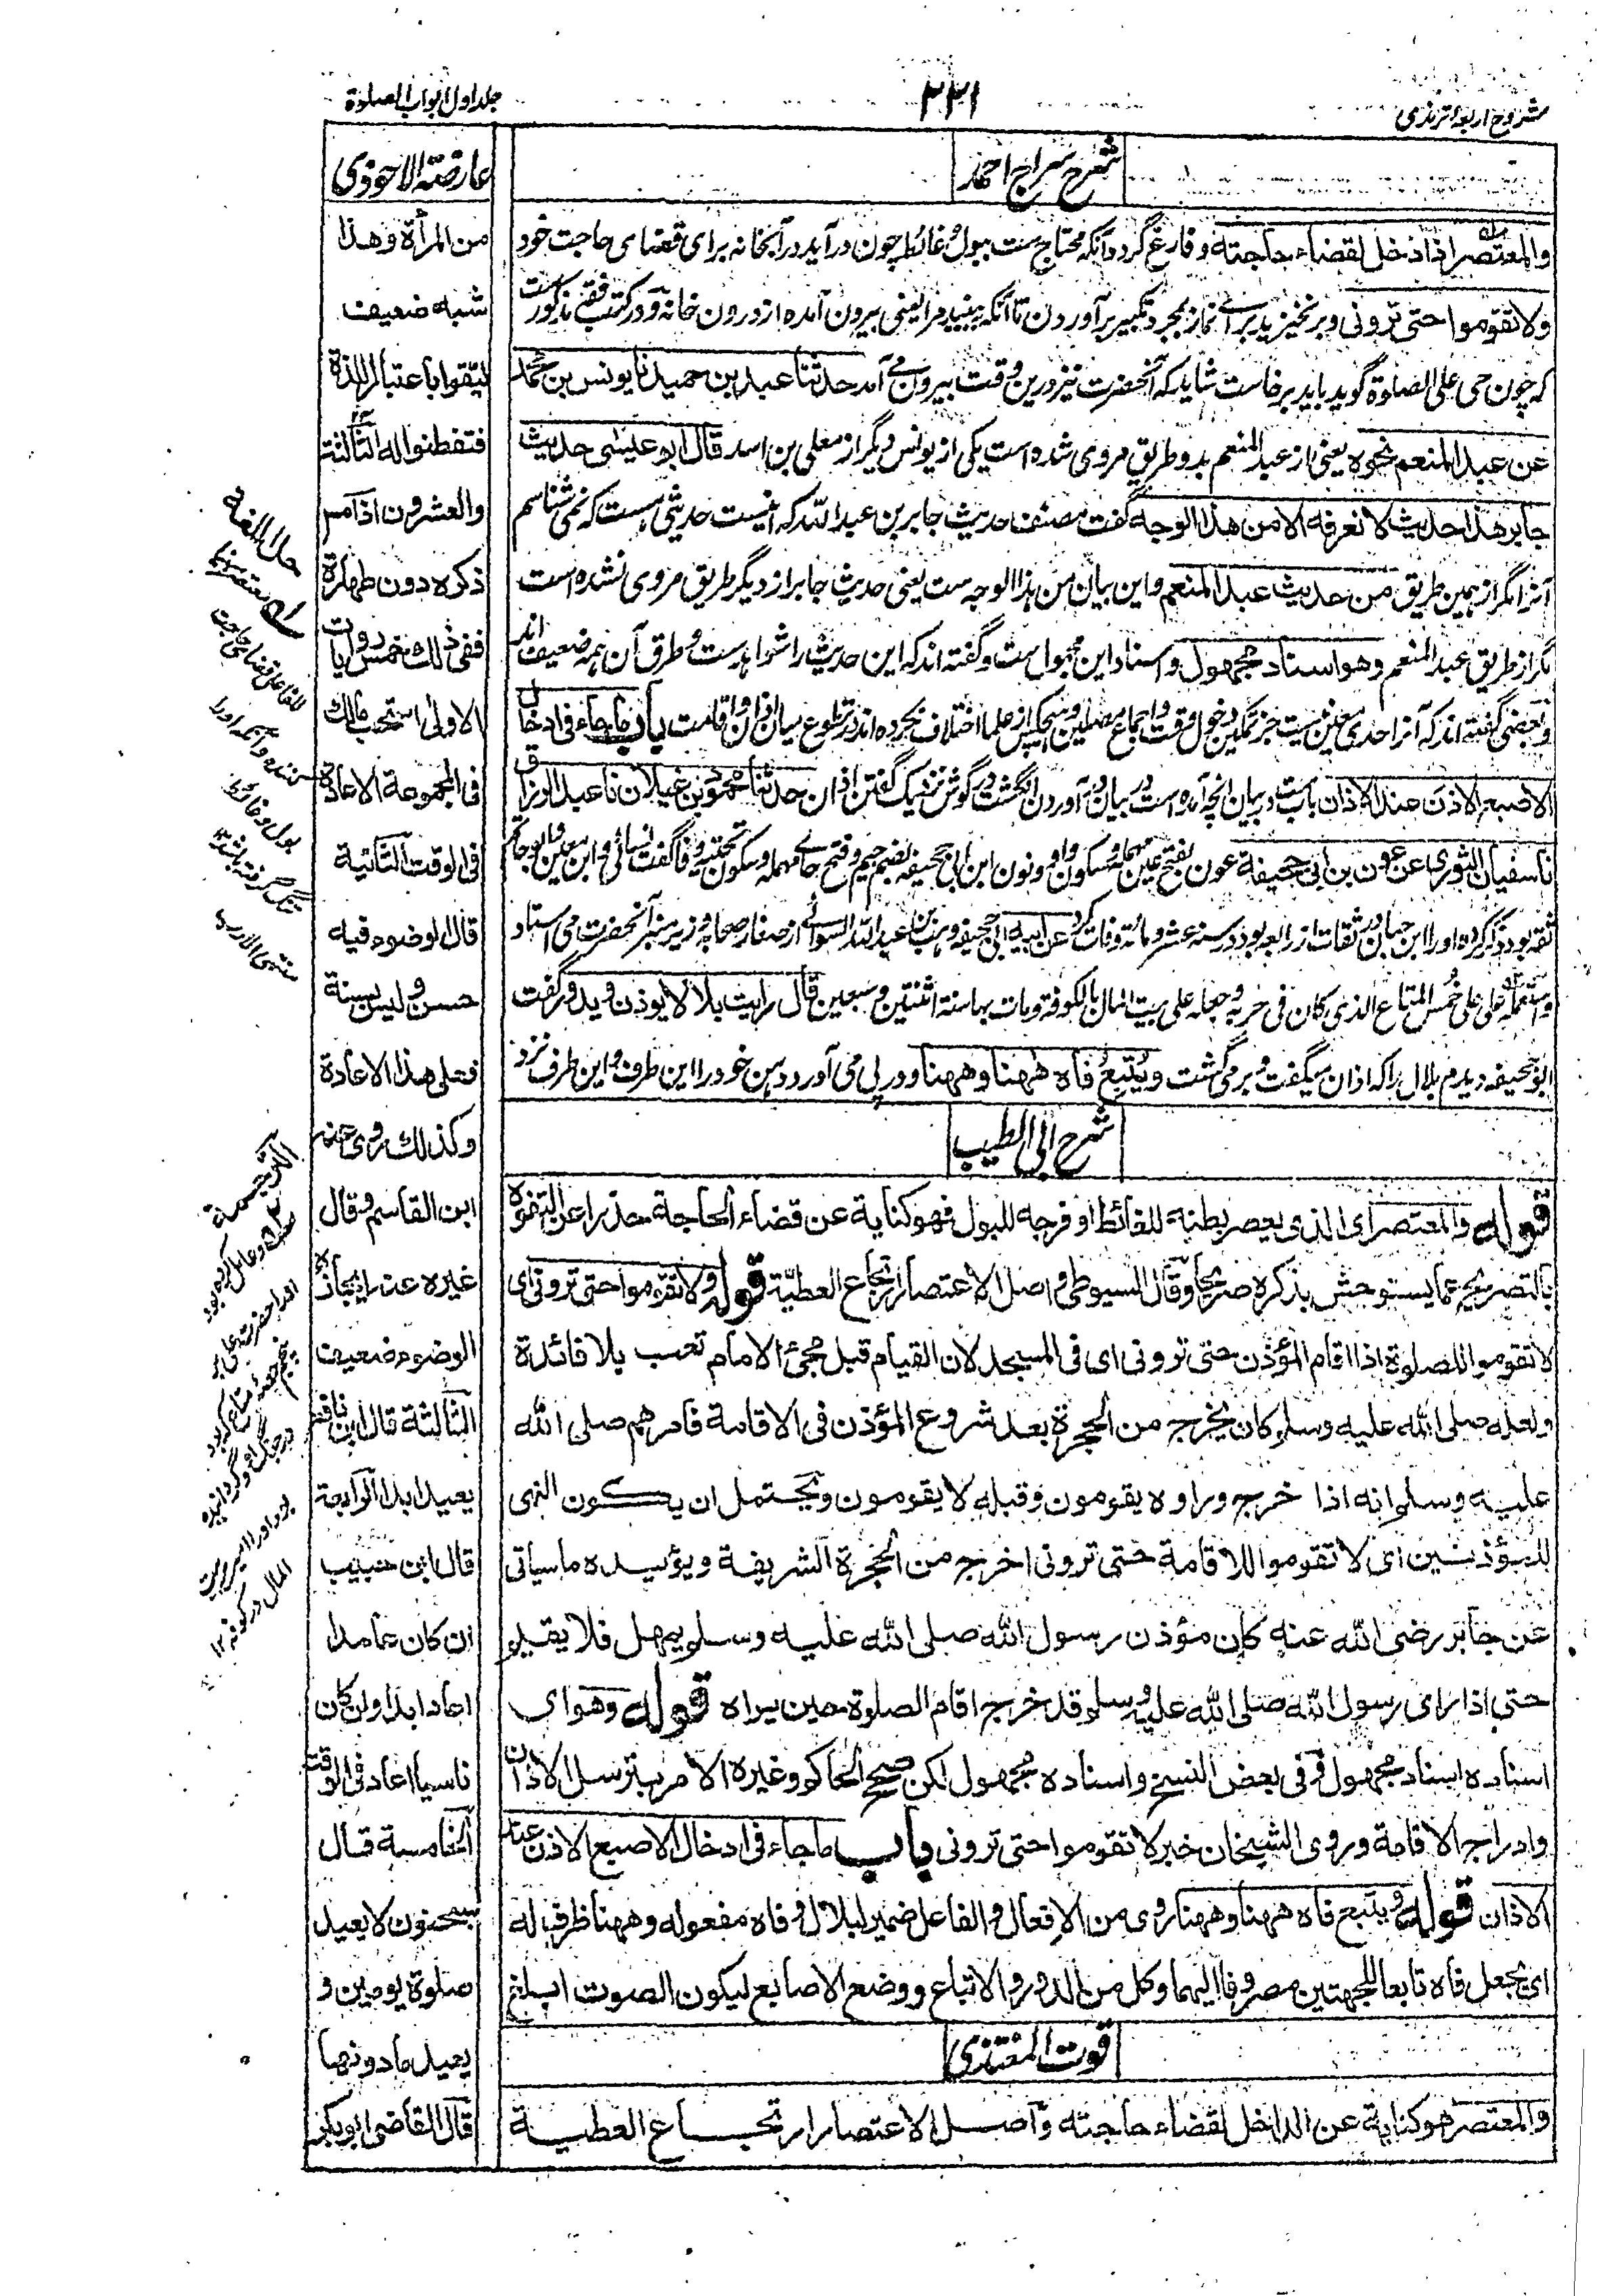 شروح اربعه ترمذی
۲۳۱
جلد اول ابواب الصلوة
شرح سراج احمد
والمعتصر اذا دخل لقضاء حاجته و فارغ گردد آنکه محتاج ست ببول و غائط چون در آید در آبخانه برای قضای حاجت خود
ولا تقوموا حتى تروني و برنخیزید برائے نماز بمجرد تکبیر برآوردن تا آنکه ببینید مرا یعنی بیرون آمده از درون خانه و در کتب فقه مذکور است
که چون حی علی الصلوة گوید باید برخاست شاید که آنحضرت نیز درین وقت بیرون می آمد حدثنا عبد بن حميد نا يونس بن محمد
عن عبد المنعم نحوه یعنی از عبد المنعم بدو طریق مروی شده است یکی از یونس دیگر از معلی بن اسد قال ابو عيسى حديث
جابر هذا حديث لا نعرفه الا من هذا الوجه گفت مصنف حدیث جابر بن عبد الله که اینست حدیثی هست که نمی شناسم
آنرا مگر از همین طریق من حديث عبد المنعم و این بیان من هذا الوجه ست یعنی حدیث جابر از دیگر طریق مروی نشده است
مگر از طریق عبد المنعم وهو اسناد مجهول و اسناد این مجهول ست و گفته اند که این حدیث را شواهد ست و طرق آن همه ضعیف اند
و بعضی گفته اند که آنرا حدی معین نیست جز تمکین دخول وقت و اجتماع مصلین و هیچکس از علما اختلاف نکرده اند در تطوع میان اذان و اقامت باب ما جاء في ادخال
الاصبع الاذن عند الاذان باب ست در بیان انچه آمده است در بیان در آوردن انگشت در گوش نزدیک گفتن اذان حدثنا محمود بن غيلان نا عبد الرزاق
نا سفيان الثوري عن عون بن ابي جحيفة عون بفتح عین مهمله و سکون واو و نون ابن ابی جحیفه بضم جیم و فتح حائے مهمله و سکون تحتیه و فا گفت نسائی و ابن معین و ابو حاتم
ثقه بود و ذکر کرده او را ابن حبان در ثقات از رابعه بود در سنه عشر و مائة وفات کرد عن ابيه ابی جحیفه وهب بن عبد الله السوائے از صغار صحابه و زیر منبر آنحضرت می استاد
و استعمله علی علی خمس المتاع الذی کان فی حربه و جعله علی بیت المال بالکوفة و مات بها سنة اثنتین و سبعین قال رايت بلالا يوذن ويدور گفت
ابو جحیفه دیدم بلال را که اذان میگفت و بر می گشت ويتبع فاه ههنا وههنا و در پی می آورد دهن خود را این طرف و این طرف نزد
شرح ابی الطیب
قوله والمعتصر اى الذى يعصر بطنه للغائط او فرجه للبول فهو كناية عن قضاء الحاجة حذرا عن التفوه
بالتصريح بما يستوحش بذكره صريحا وقال السيوطى واصل الاعتصار ارتجاع العطية قوله ولا تقوموا حتى تروني اى
لا تقوموا للصلوة اذا اقام المؤذن حتى تروني اى فى المسجد لان القيام قبل مجئ الامام تعب بلا فائدة
ولعله صلى الله عليه وسلم كان يخرج من الحجرة بعد شروع المؤذن فى الاقامة فامرهم صلى الله
عليه وسلم انه اذا خرج وراوه يقومون وقبله لا يقومون ويحتمل ان يكون النهى
للمؤذنين اى لا تقوموا للاقامة حتى تروني اخرج من الحجرة الشريفة ويؤيده ما سياتى
عن جابر رضى الله عنه كان مؤذن رسول الله صلى الله عليه وسلم يمهل فلا يقيم
حتى اذا راى رسول الله صلى الله عليه وسلم قد خرج اقام الصلوة حين يراه قوله وهو اى
اسناده اسناد مجهول وفى بعض النسخ واسناده مجهول لكن صحح الحاكم وغيره الامر بترسل الاذان
وادراج الاقامة وروى الشيخان خبر لا تقوموا حتى تروني باب ما جاء فى ادخال الاصبع الاذن عند
الاذان قوله ويتبع فاه ههنا وههنا روى من الافعال والفاعل ضمير لبلال وفاه مفعوله وههنا ظرف له
اى يجعل فاه تابعا للجهتين مصروفا اليهما وكل من الدور والاتباع ووضع الاصابع ليكون الصوت ابلغ
قوت المغتذی
والمعتصر هو كناية عن الداخل لقضاء حاجته واصل الاعتصار ارتجاع العطية
عارضة الاحوذی
من المرأة وهذا
شبه ضعيف
ليتقوا باعتبار اللذة
فتفطنوا له الثالثة
والعشرون اذا مس
ذكره دون طهارة
ففى ذلك خمس روايات
الاولى استحب مالك
فى المجموعة الاعادة
فى الوقت الثانية
قال الوضوء فيه
حسن وليس بسنة
فعلى هذا الاعادة
وكذلك روى عنه
ابن القاسم وقال
غيره عنه
الوضوء ضعيف
الثالثة قال ابن نافع
يعيد ابدا الرابعة
قال ابن حبيب
ان كان عامدا
اعاد ابدا وان كان
ناسيا اعاد فى الوقت
الخامسة قال
سحنون لا يعيد
صلوة يومين و
يعيد ما دونها
قال القاضى ابو بكر
حل اللغة
معتصر
قضای حاجت
کننده و آنکه او را
بول و غائط
تنگ گرفته باشد ۱۲
منتهی الارب
و عامل کرده بود
او را حضرت علی بر
پنجم حصه متاع که بود
در جنگ او و گردانیده
بود او را امیر بیت
المال در کوفه ۱۲